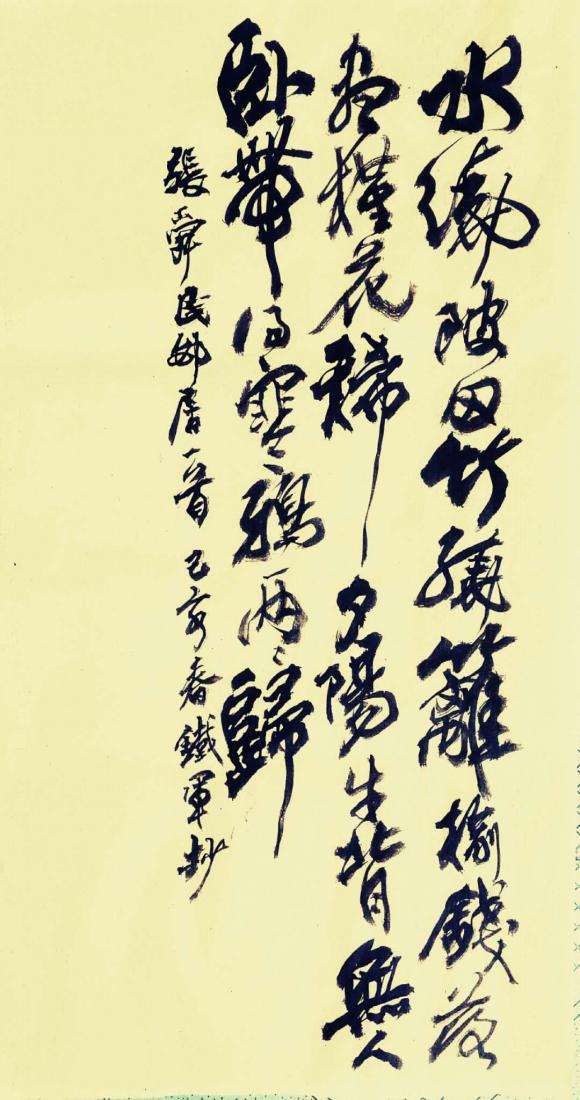 水繞陂田竹繞籬榆錢落
盡槿花稀夕陽牛背無人
臥帶得寒鴉兩々歸
張舜民邨居一首己亥春鐵軍抄